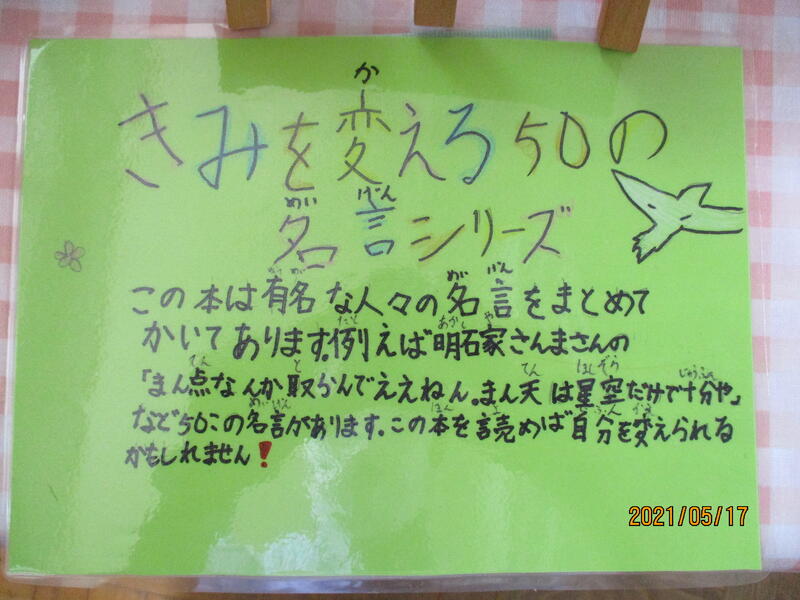 きみを変える50の
名言シリーズ
この本は有名な人々の名言をまとめて
かいてあります。例えば明石家さんまさんの
「まん点なんか取らんでええねん。まん天は星空だけで十分や」
など50この名言があります。この本を読めば自分を変えられる
かもしれません!
2021/05/17